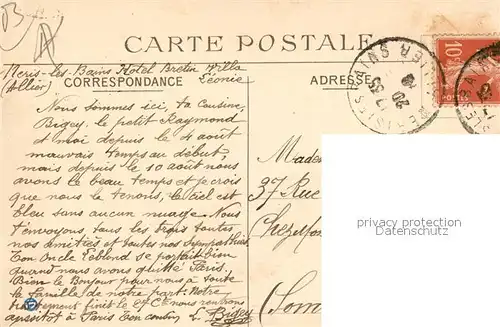 CARTE POSTALE
Néris-les-Bains Hotel Bretin Villa
(Allier) Léonie
CORRESPONDANCE
ADRESSE
Nous sommes ici, ta Cousine,
Bigey, le petit Raymond
et moi depuis le 4 août
mauvais temps au début,
mais depuis le 10 août nous
avons le beau temps et je crois
que nous le tenons, le ciel est
bleu sans aucun nuage. Nous
t'envoyons, tous les trois toutes
nos amitiés et toutes nos sympathies
Ton Oncle Leblond se portait bien
quand nous avons quitté Paris.
Bien le Bonjour pour nous à toute
ta famille de notre part. Notre
traitement finit le 27 et nous rentrons
aussitôt à Paris Ton cousin L. Bigey
Mades
37 Rue
(Som
10c
privacy protection
privacy protection